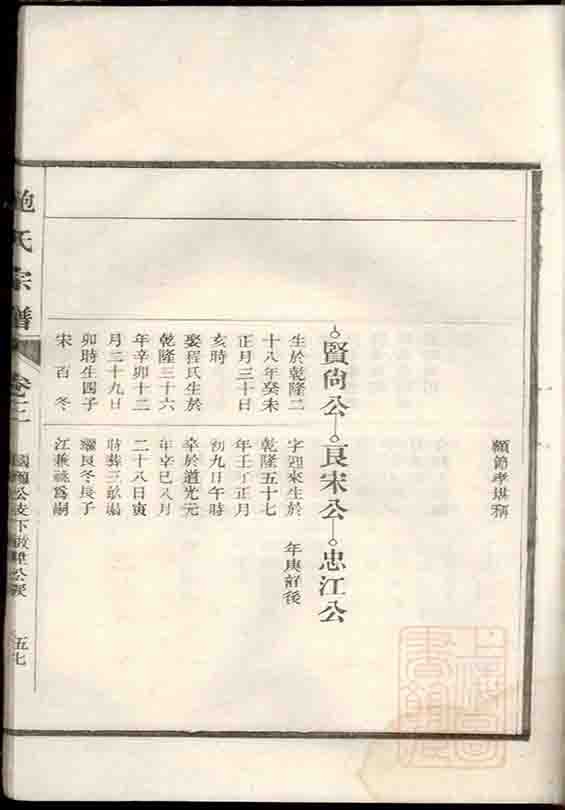 顯節孝堪稱
賢尙公 良宋公 忠江公
生於乾隆二
十八年癸未
正月三十日
亥時
娶程氏生於
乾隆三十六
年辛卯十二
月二十九日
卯時生四子
宋 百 冬
字迎來生於
乾隆五十七
年壬子正月
初九日午時
卒於道光元
年辛巳八月
二十八日寅
時葬三畝
良冬長子
江兼祧爲嗣
年庚前後
鮑氏宗譜
卷三
公支下 公派
五七
上海圖書館藏